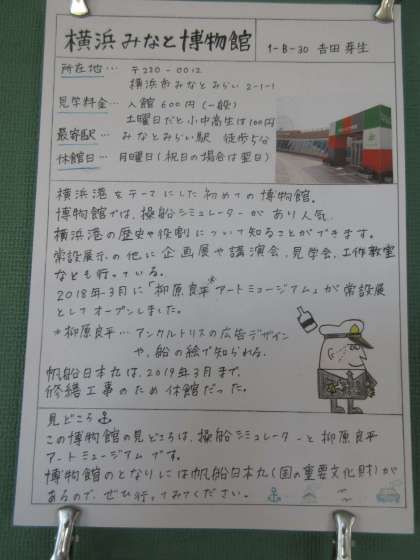 横浜みなと博物館
1-B-30 吉田芽生
所在地… 〒220-0012
横浜市みなとみらい2-1-1
見学料金… 入館600円(一般)
土曜日だと小中高生は100円
最寄駅… みなとみらい駅 徒歩5分
休館日… 月曜日(祝日の場合は翌日)
横浜港をテーマにした初めての博物館。
博物館では、操船シミュレーターがあり人気。
横浜港の歴史や役割について知ることができます。
常設展示の他に企画展や講演会、見学会、工作教室
なども行っている。
2018年3月に「柳原良平*アートミュージアム」が常設展
としてオープンしました。
*柳原良平… アンクルトリスの広告デザイン
や、船の絵で知られる。
帆船日本丸は、2019年3月まで、
修繕工事のため休館だった。
見どころ
この博物館の見どころは、操船シミュレーターと柳原良平
アートミュージアムです。
博物館のとなりには帆船日本丸(国の重要文化財)が
あるので、ぜひ行ってみてください。